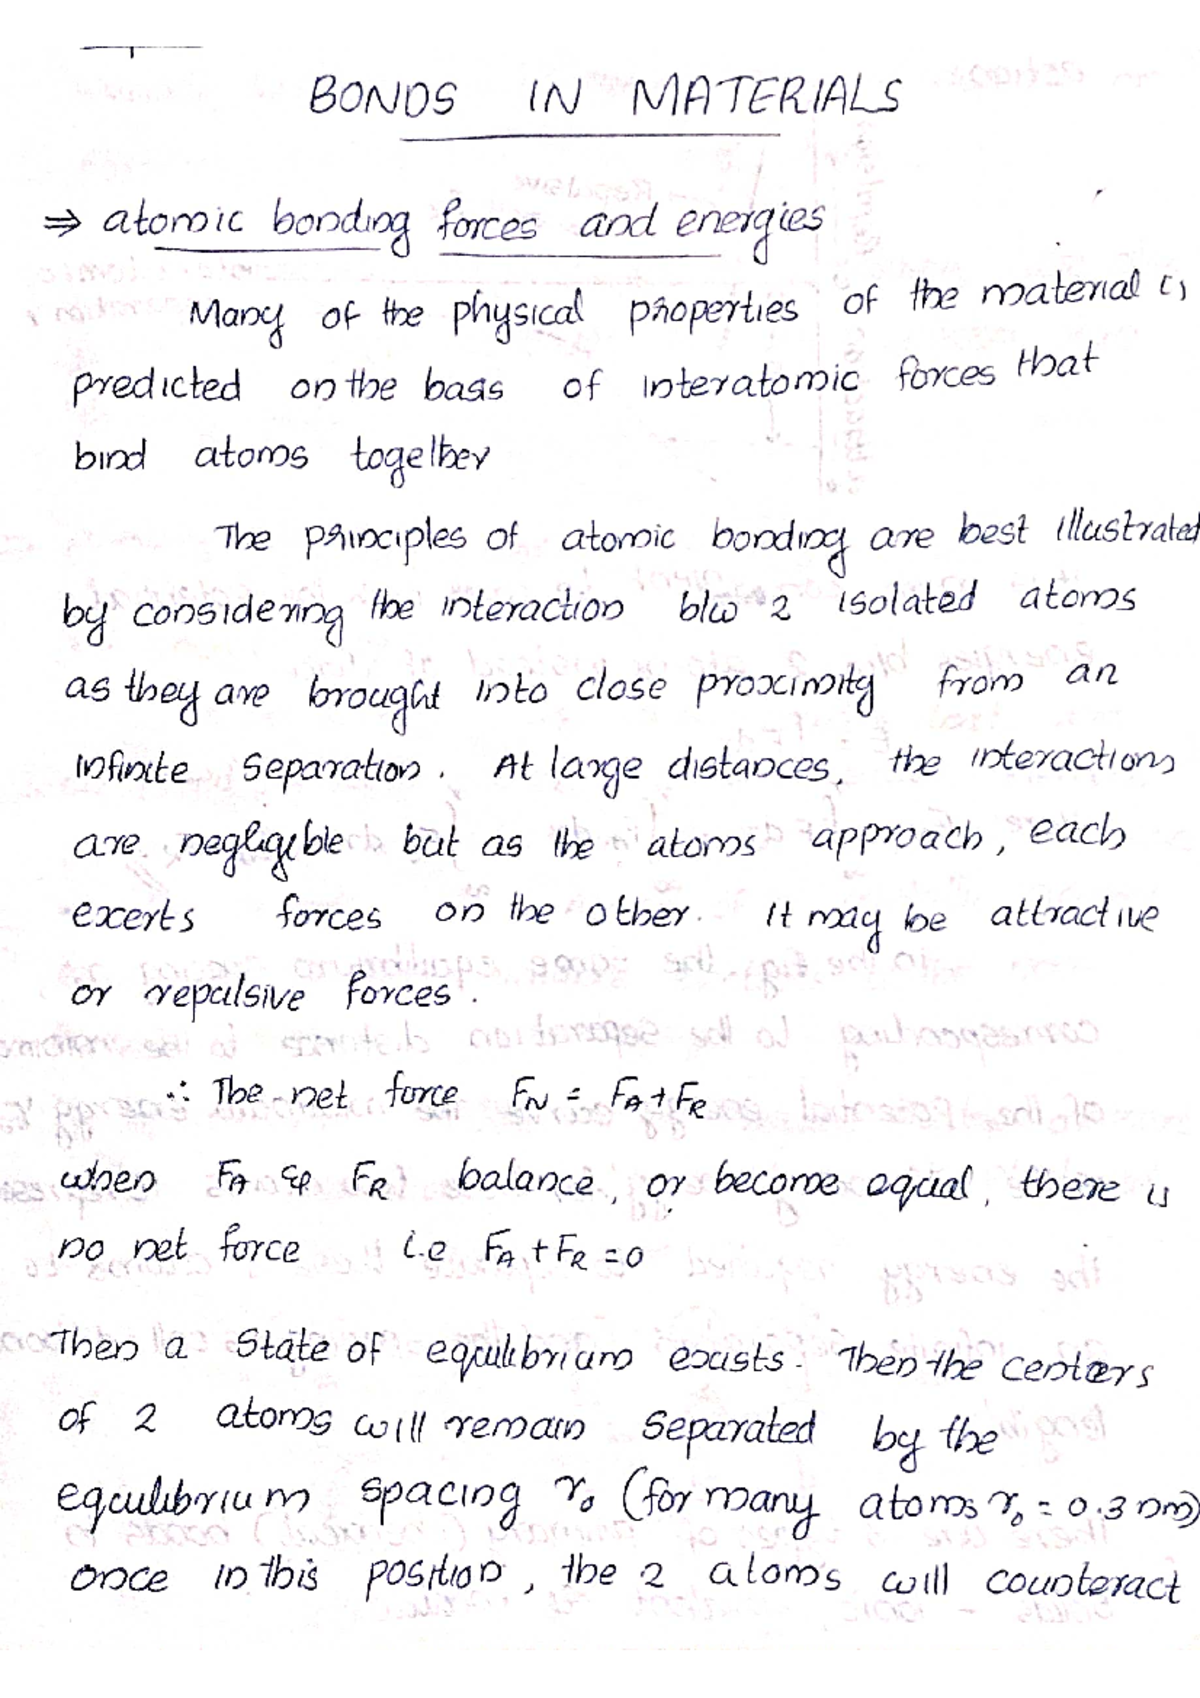 BONDS IN MATERIALS
⇒ atomic bonding forces and energies
Many of the physical properties of the material is
predicted on the basis of interatomic forces that
bind atoms together
The principles of atomic bonding are best illustrated
by considering the interaction b/w 2 isolated atoms
as they are brought into close proximity from an
infinite separation. At large distances, the interactions
are negligible but as the atoms approach, each
excerts forces on the other. It may be attractive
or repulsive forces.
∴ The net force F_N = F_A + F_R
when F_A & F_R balance, or become equal, there is
no net force i.e F_A + F_R = 0
Then a state of equilibrium exists. Then the centers
of 2 atoms will remain separated by the
equilibrium spacing r₀ (for many atoms r₀ = 0.3 nm)
once in this position, the 2 atoms will counteract